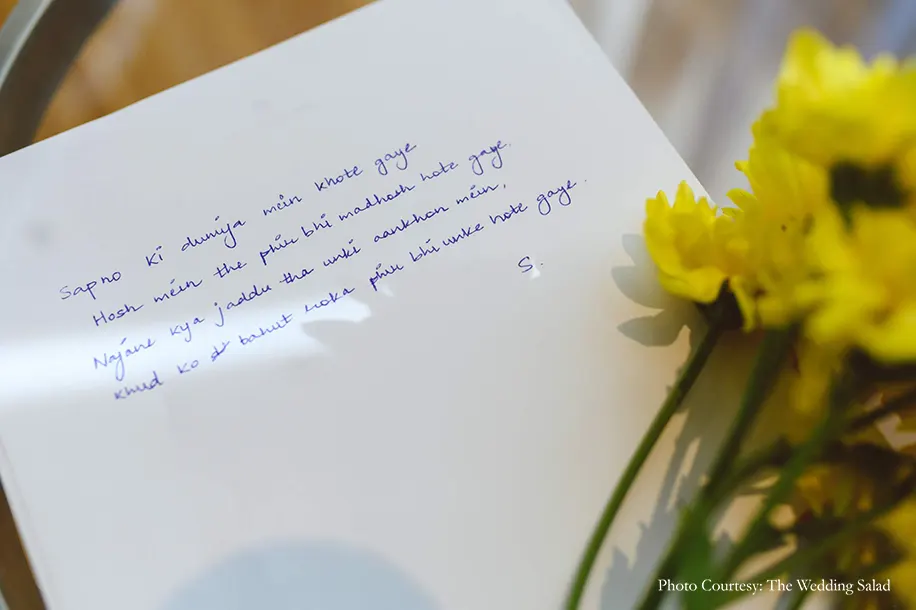 Sapno ki duniya mein khote gaye
Hosh mein the phir bhi madhosh hote gaye.
Najane kya jaddu tha unki aankhon mein,
khud ko bahut roka phir bhi unke hote gaye.
S.
Photo Courtesy: The Wedding Salad